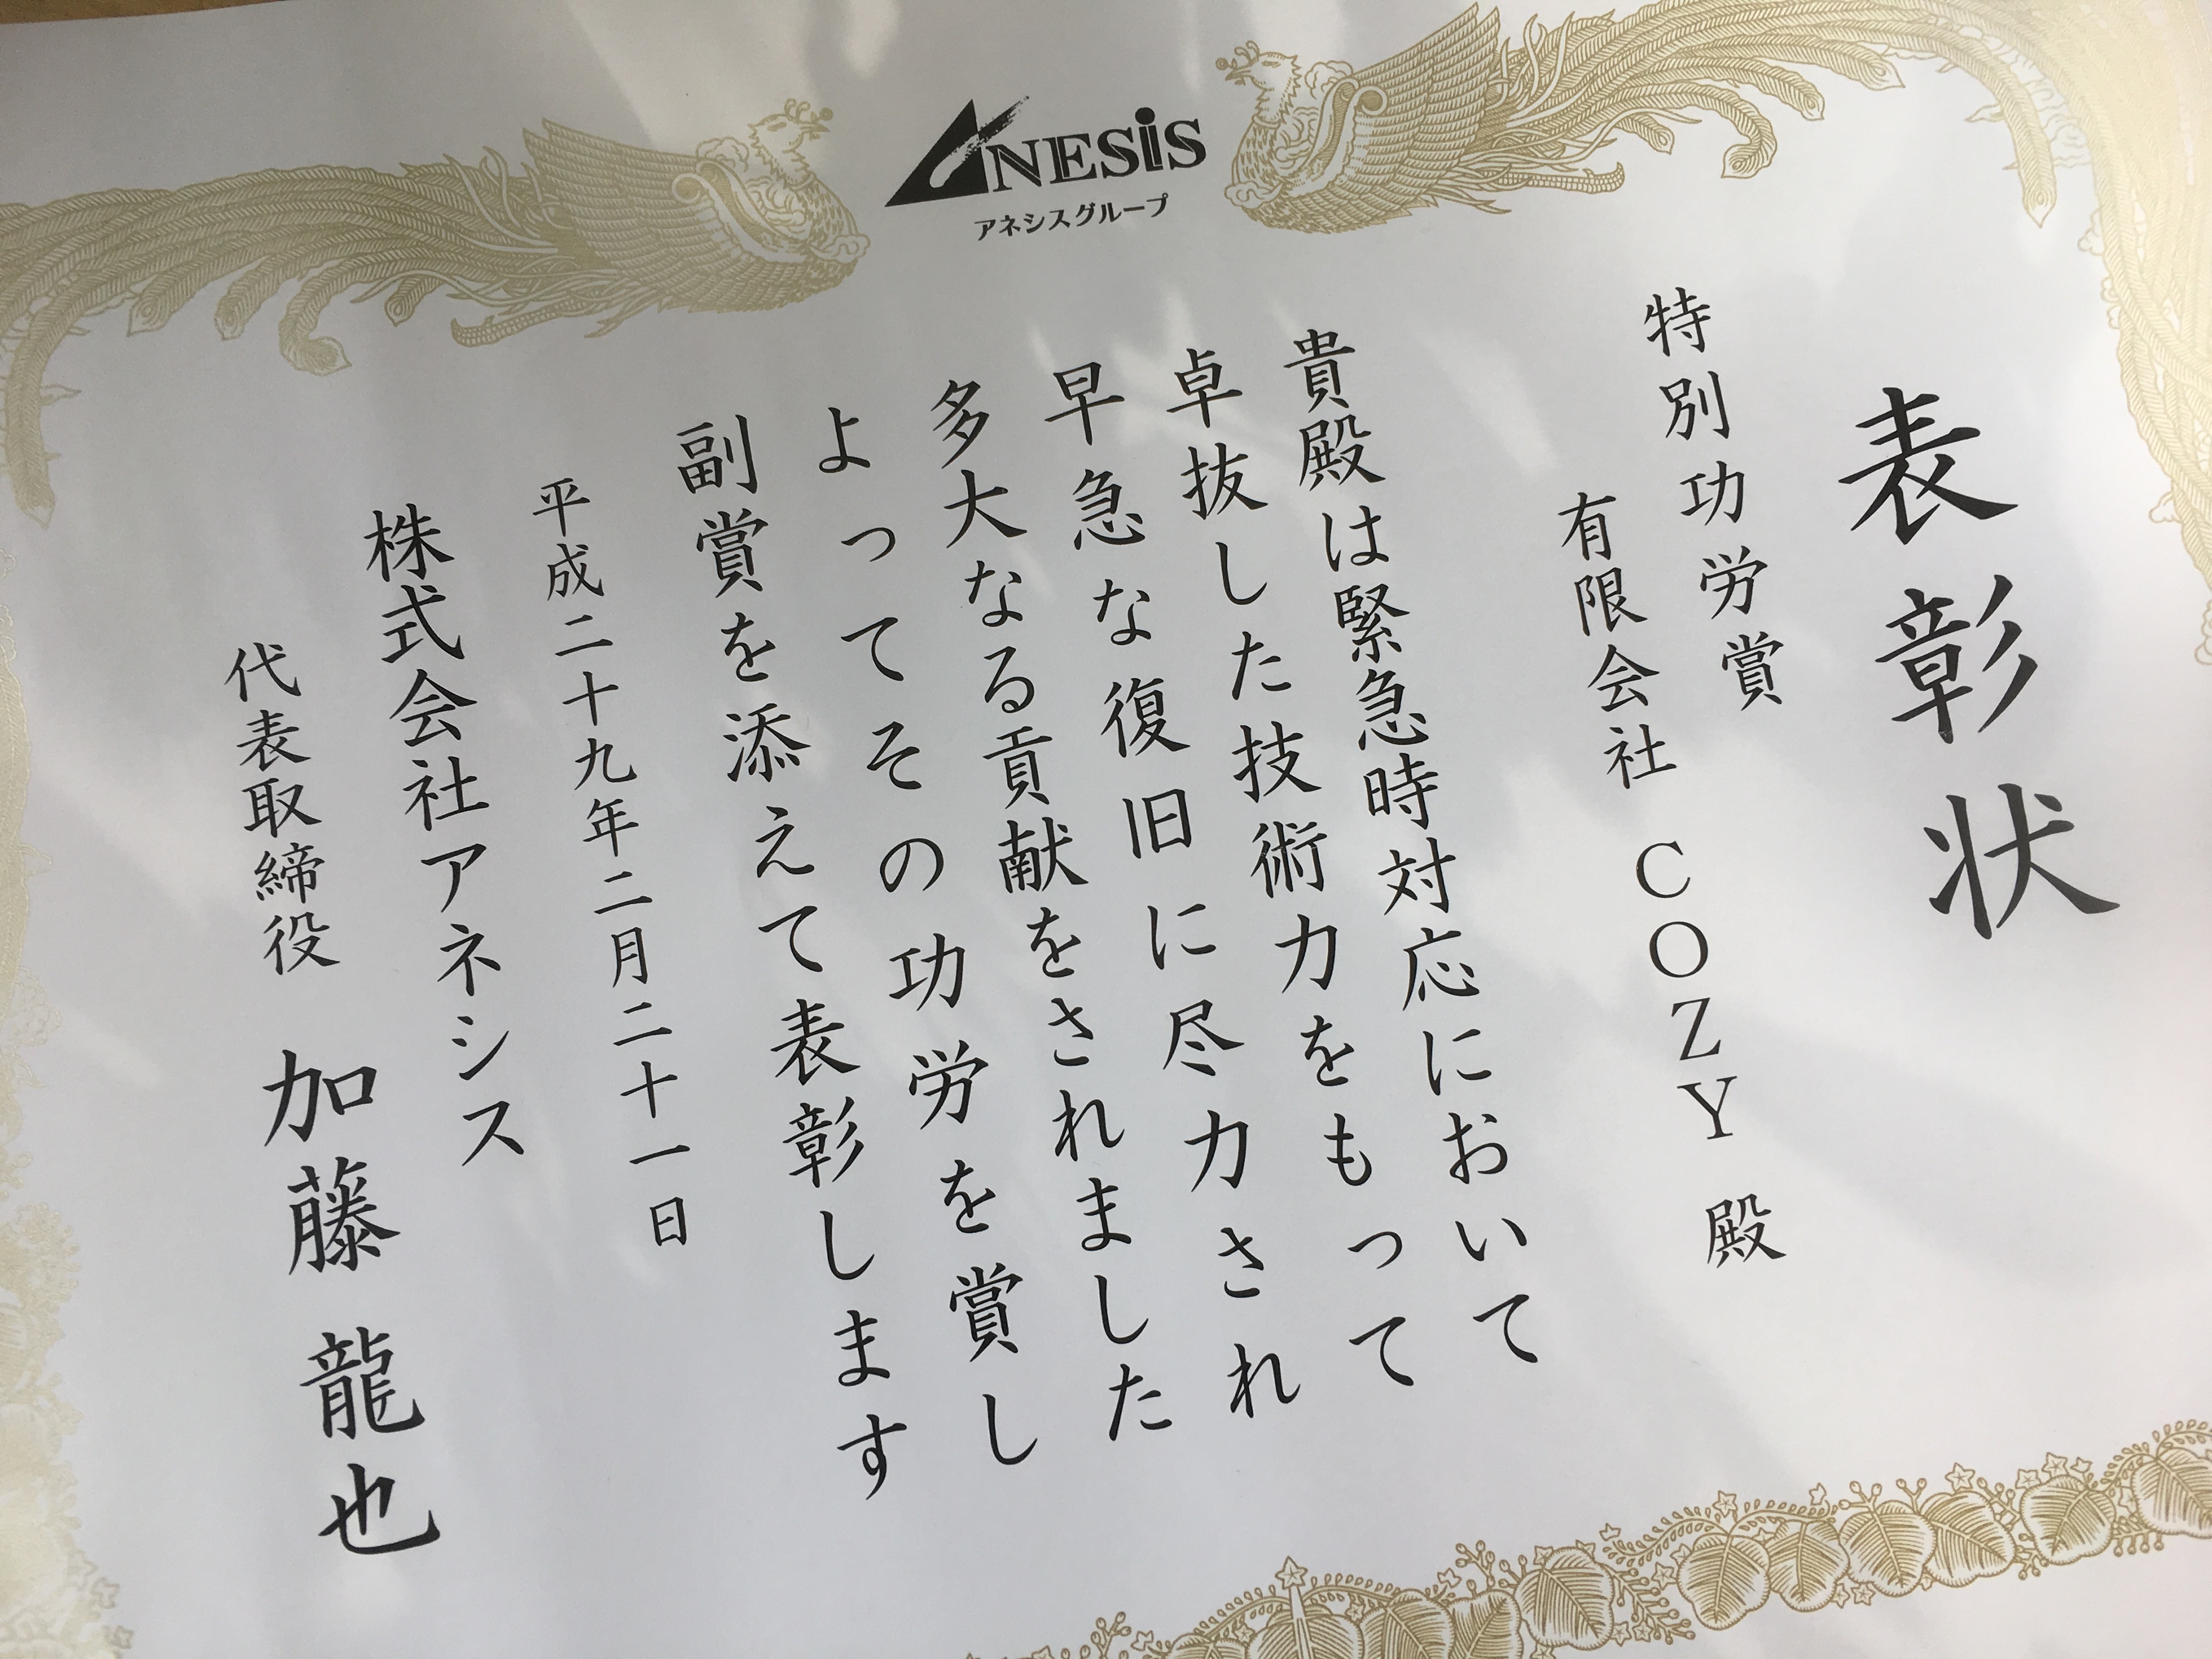 ANESIS
アネシスグループ
表彰状
特別功労賞
有限会社 COZY 殿
貴殿は緊急時対応において
卓抜した技術力をもって
早急な復旧に尽力され
多大なる貢献をされました
よってその功労を賞し
副賞を添えて表彰します
平成二十九年二月二十一日
株式会社アネシス
代表取締役 加藤龍也